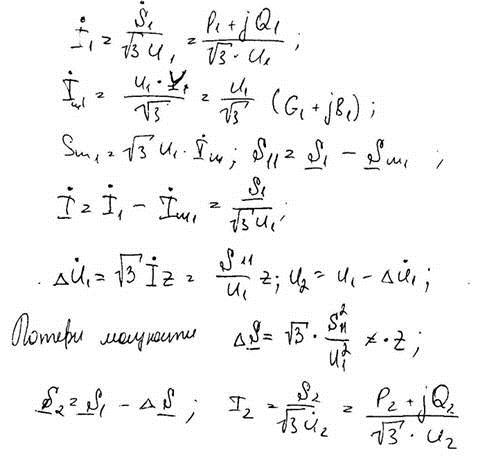 İ₁ = Ṡ₁/(√3 U₁) = (P₁ + jQ₁)/(√3 · U₁) ;
İш₁ = (U₁ · Y₁)/√3 = U₁/√3 (G₁ + jB₁) ;
Sш₁ = √3 U₁ · İш ; S₁₁ = S₁ − Sш₁ ;
İ = İ₁ − İш₁ = S₁/(√3 U₁) ;
ΔU̇₁ = √3 İ z = S₁₁/U₁ z ; U₂ = U₁ − ΔU̇₁ ;
Потери мощности ΔS = √3 · S₁₁²/U₁² · z ;
S₂ = S₁ − ΔS ; I₂ = S₂/(√3 U̇₂) = (P₂ + jQ₂)/(√3 · U₂)